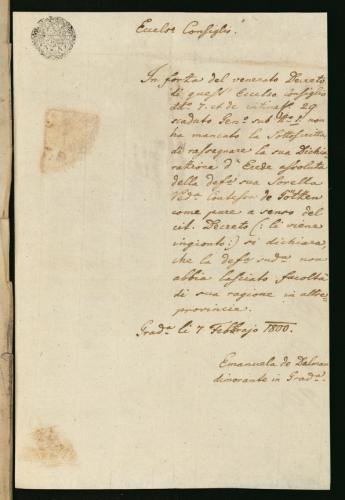 Eccelso Consiglio.
In forza del venerato Decreto
di quest' Eccelso Consiglio
7. et de intimatº 29
scaduto Genº sub Nº 1. non
ha mancato la Sottoscritta
di rassegnare la sua Dichia-
razione d' Erede assoluta
della defª sua Sorella
Vedª Contessa de
come pure a senso del
cit. Decreto (: li viene
ingionto :) si dichiara,
che la defª sudª non
abbia lasciato facoltà
di sua ragione in altre
provincia.
Gradª li 7 Febbrajo 1800.
Emanuela de
dimorante in Gradª.